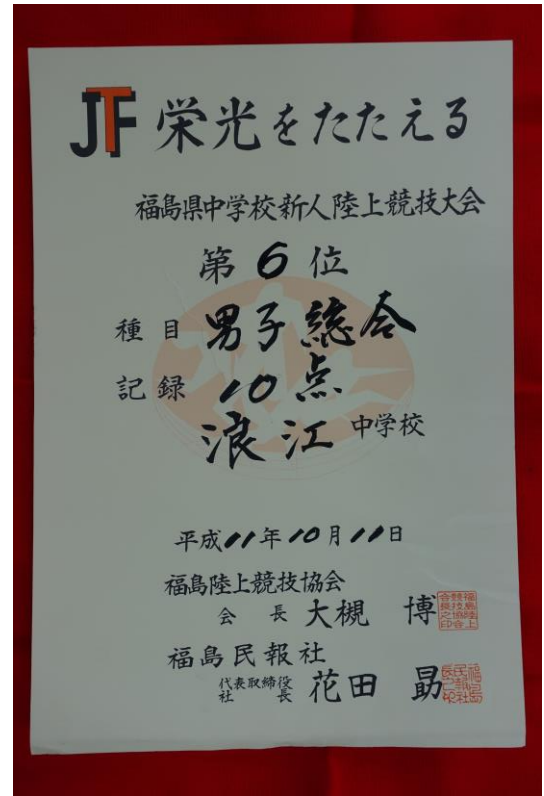 JTF 栄光をたたえる
福島県中学校新人陸上競技大会
第6位
種目 男子総合
記録 10点
浪江中学校
平成11年10月11日
福島陸上競技協会
会長 大槻 博
福島民報社
代表取締役社長 花田 勗